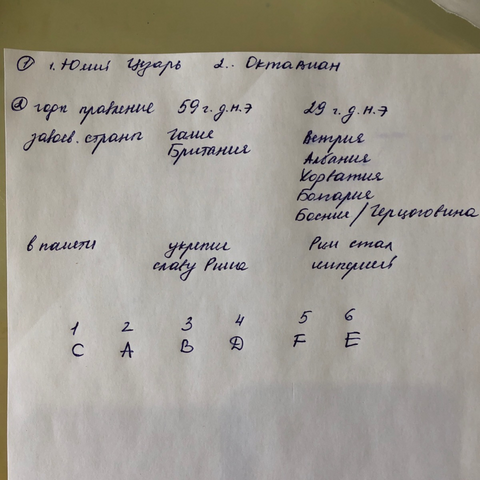 ① 1. Юлий Цезарь 2.. Октавиан
② годы правление 59 г. д.н.э 29 г. д.н.э
завоев. страны Галие Встрия
Британия Албания
Хорватия
Болгария
Боснии / Герцоговина
в памяти укрепил Рим стал
славу Рима империей
1 2 3 4 5 6
C A B D F E